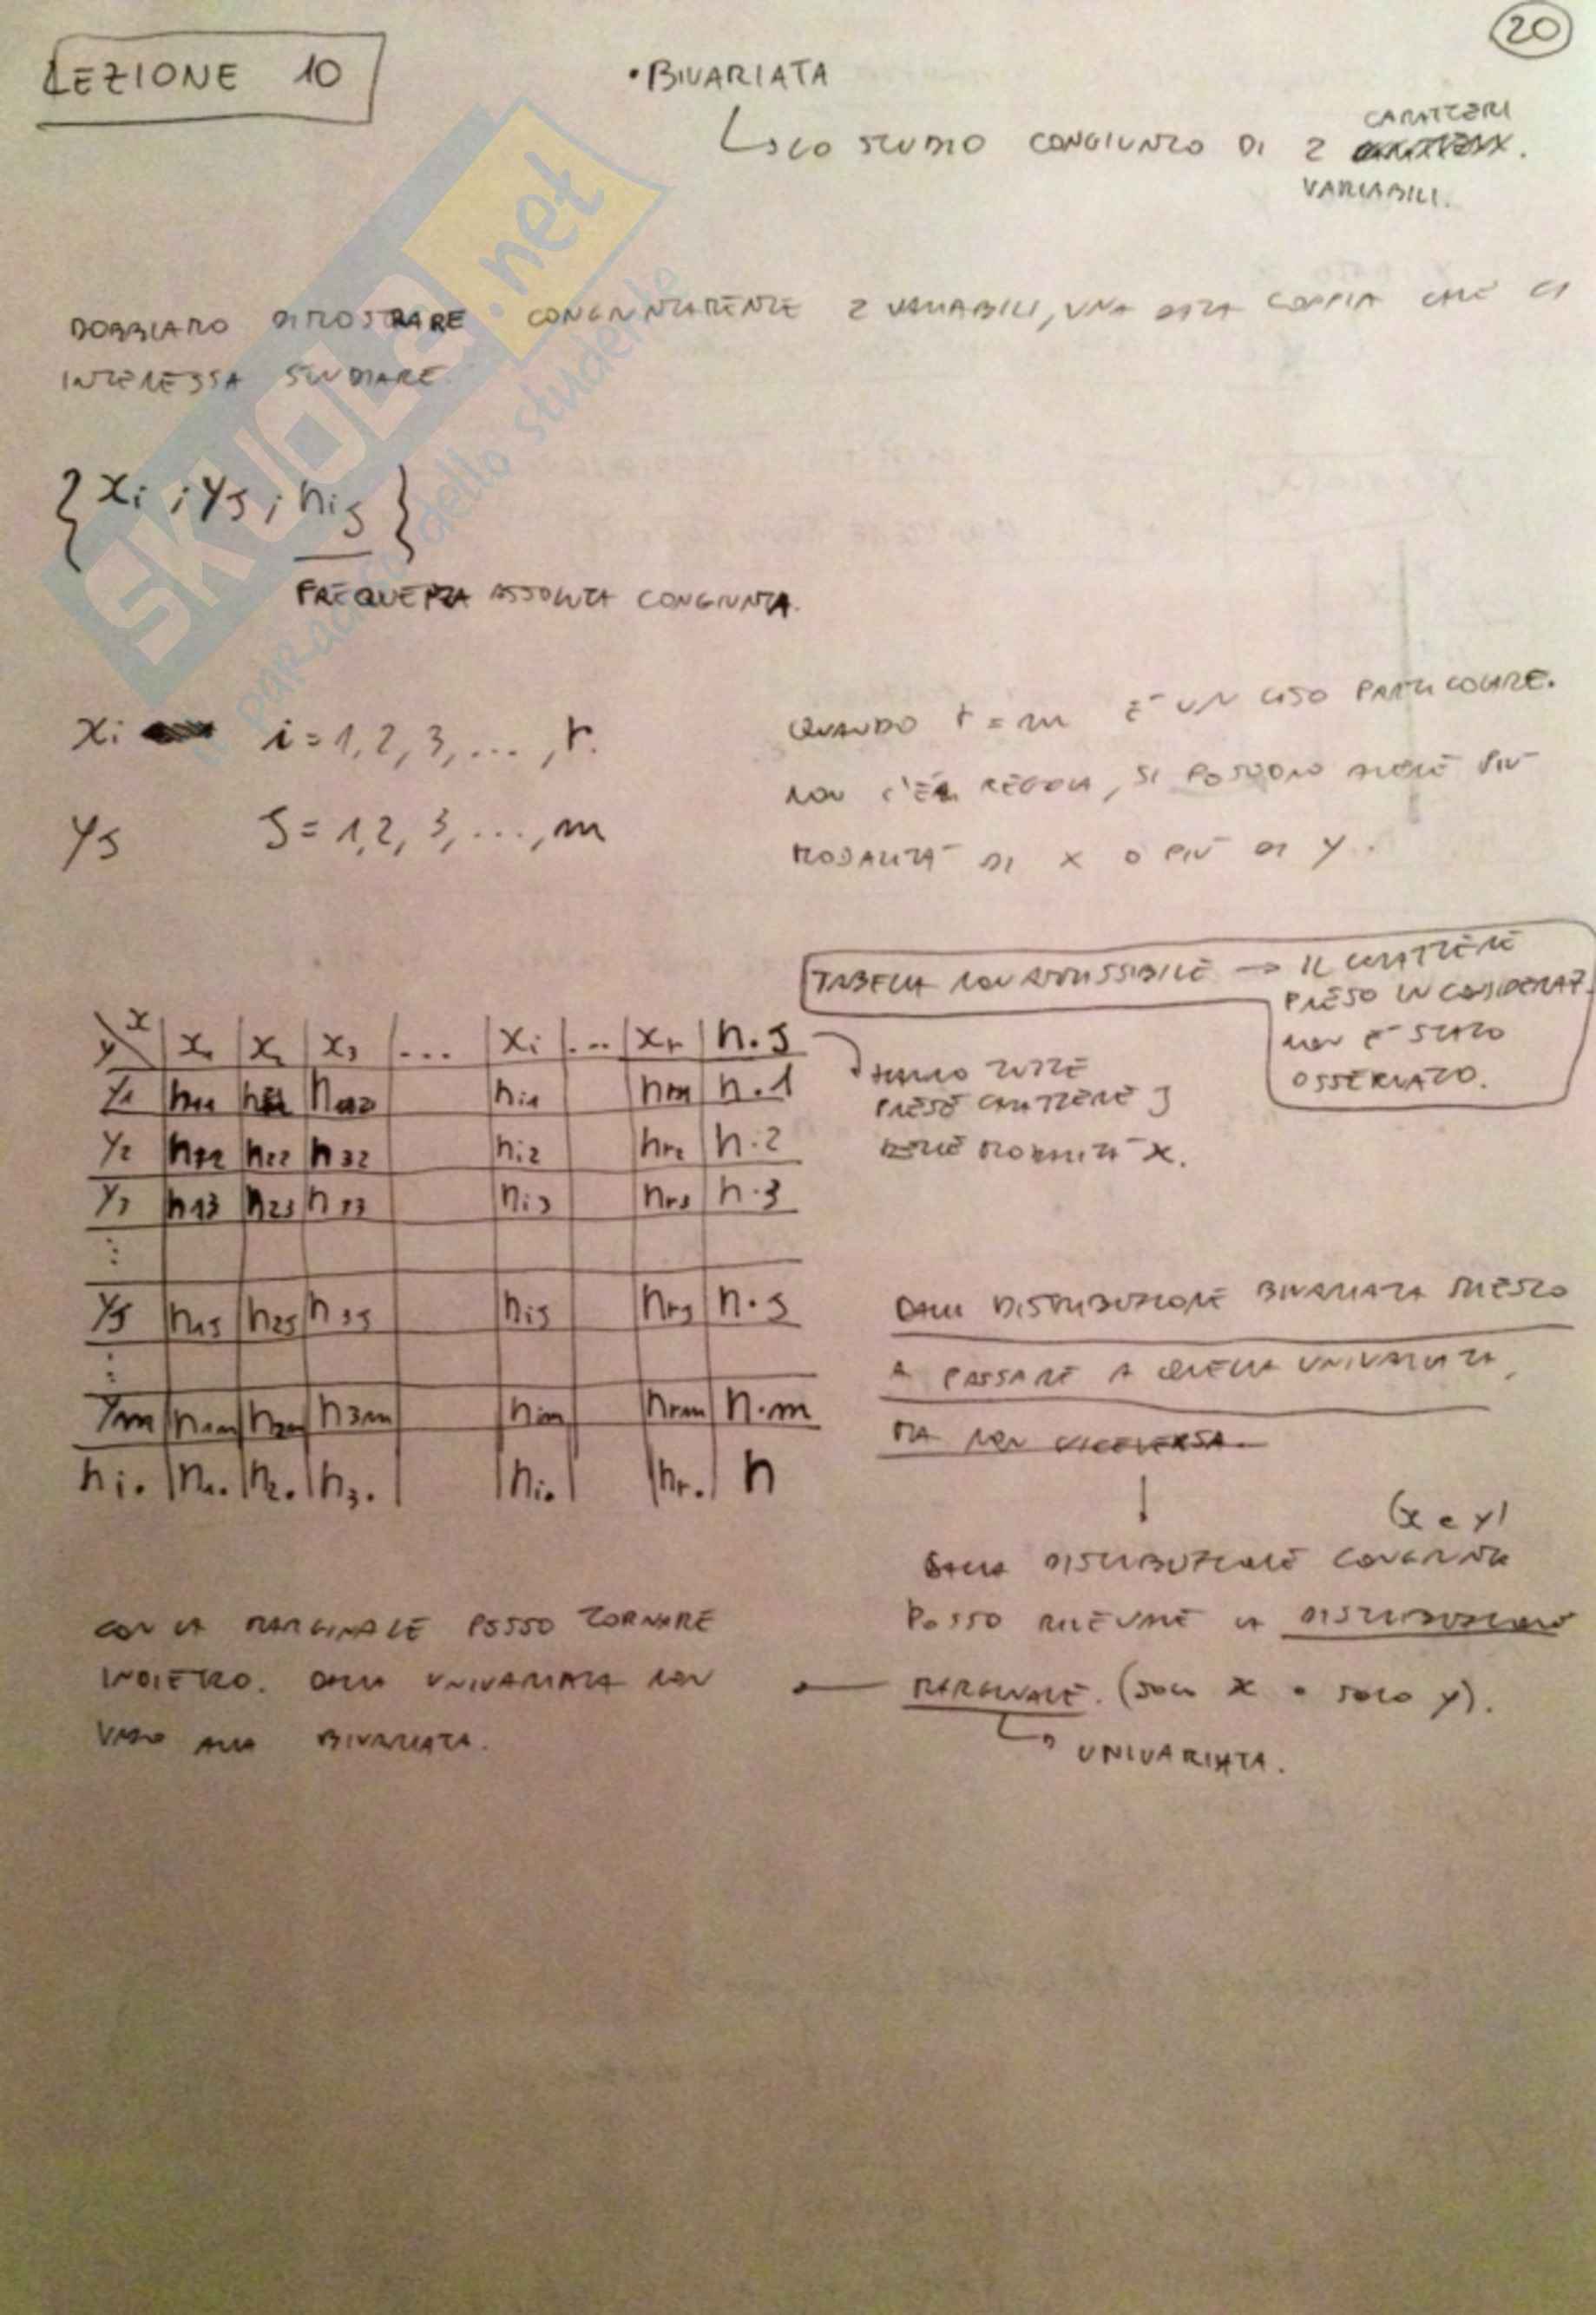 20
LEZIONE 10
• BIVARIATA
↳ LO STUDIO CONGIUNTO DI 2 CARATTERI.
VARIABILI.
DOBBIAMO DIMOSTRARE CONGIUNTAMENTE 2 VARIABILI, UNA DATA COPPIA CHE CI
INTERESSA STUDIARE.
{ xi ; yj ; nij }
FREQUENZA ASSOLUTA CONGIUNTA.
xi i = 1, 2, 3, ..., r.
yj J = 1, 2, 3, ..., m
QUANDO r = m E' UN CASO PARTICOLARE.
NON C'È REGOLA, SI POSSONO AVERE PIU'
MODALITA' DI X O PIU' DI Y.
TABELLA NON AMMISSIBILE → IL CARATTERE
PRESO IN CONSIDERAZ.
NON E' STATO
OSSERVATO.
y \ x x1 x2 x3 ... xi ... xr n.J
y1 n11 ni1 n.1
HANNO TUTTE
PRESE CARATTERE J
DELLE MODALITA' X.
y2 n22 n32 ni2 nr2 n.2
y3 n13 n23 n33 ni3 nr3 n.3
⋮
yj n1j n2j n3j nij nrj n.j
⋮
ym n1m n2m n3m nim nrm n.m
ni. n1. n2. n3. ni. nr. n
DALLA DISTRIBUZIONE BIVARIATA RIESCO
A PASSARE A QUELLA UNIVARIATA,
MA NON VICEVERSA.
↓
(x e y)
DALLA DISTRIBUZIONE CONGIUNTA
POSSO RILEVARE LA DISTRIBUZIONE
MARGINALE. (SOLO X O SOLO Y).
↳ UNIVARIATA.
CON LA MARGINALE POSSO TORNARE
INDIETRO. DALLA UNIVARIATA NON
VADO ALLA BIVARIATA.
SKUOLa.net
paradiso dello studente